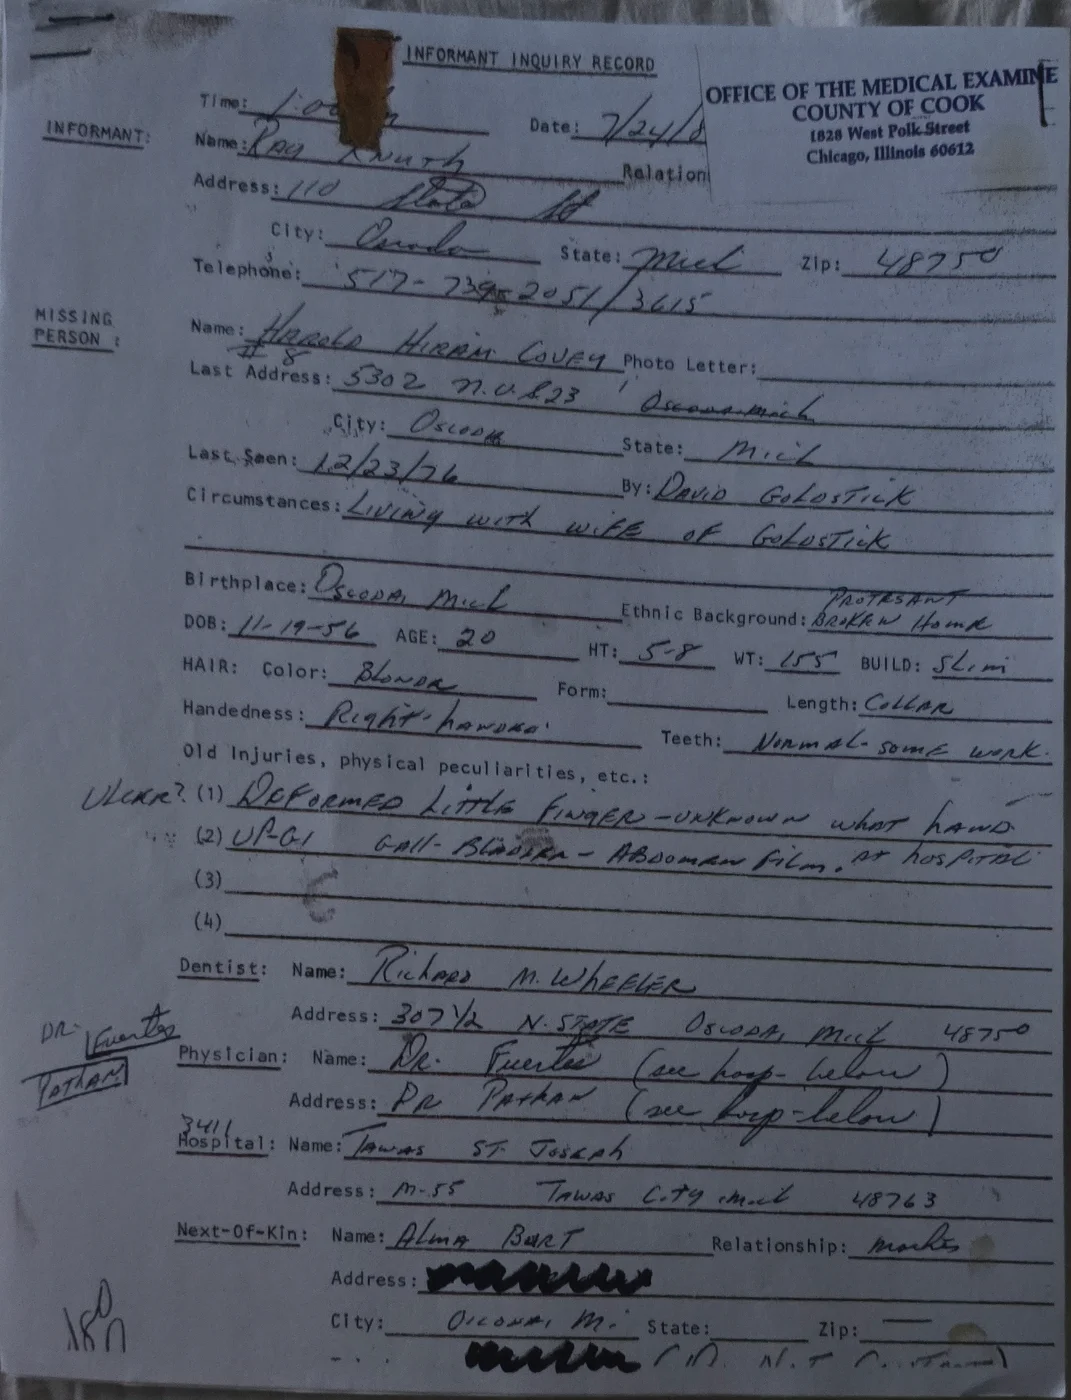 INFORMANT INQUIRY RECORD
OFFICE OF THE MEDICAL EXAMINE
COUNTY OF COOK
1828 West Polk Street
Chicago, Illinois 60612
Time: Date: 7/24/
INFORMANT: Name: Ray Knuth Relation
Address: 110 State St
City: Oscoda State: Mich Zip: 48750
Telephone: 517-739-2051/3615
MISSING PERSON: Name: HAROLD HIRAM COVEY Photo Letter:
# 8
Last Address: 5302 N. U.S. 23, Oscoda Mich
City: OSCODA State: Mich
Last Seen: 12/23/76 By: DAVID GOLDSTICK
Circumstances: LIVING WITH WIFE OF GOLDSTICK
Birthplace: OSCODA, Mich Ethnic Background: PROTESANT BROKEN HOME
DOB: 11-19-56 AGE: 20 HT: 5-8 WT: 155 BUILD: SLim
HAIR: Color: BLONDE Form: Length: COLLAR
Handedness: Right-handed Teeth: NORMAL-some work.
Old Injuries, physical peculiarities, etc.:
ULCER? (1) DEFORMED LITTLE FINGER-UNKNOWN WHAT HAND
(2) UP-GI GALL-BLADDER-ABDOMEN FILM. AT hospital
(3)
(4)
Dentist: Name: Richard M. WHEELER
Address: 307 1/2 N. STATE OSCODA, Mich 48750
DR. Fuertes
PATHAN
Physician: Name: Dr. Fuertes (see hosp-below)
Address: DR PATHAN (see hosp-below)
3411
Hospital: Name: TAWAS ST. JOSEPH
Address: M-55 TAWAS City Mich 48763
Next-Of-Kin: Name: Alma BURT Relationship: mother
Address:
City: OSCODA, Mi. State: Zip: